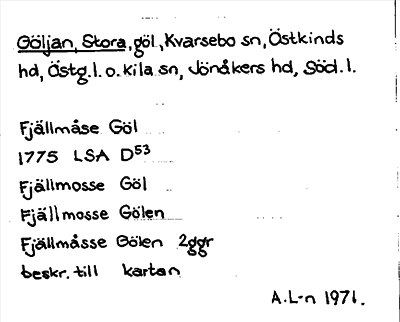 Göljan, Stora, göl, Kvarsebo sn, Östkinds
hd, Östg.l. o. Kila sn, Jönåkers hd, Söd.l.
Fjällmåse Göl
1775 LSA D53
Fjällmosse Göl
Fjällmosse Gölen
Fjällmåsse Gölen 2ggr
beskr. till kartan
A.L-n 1971.